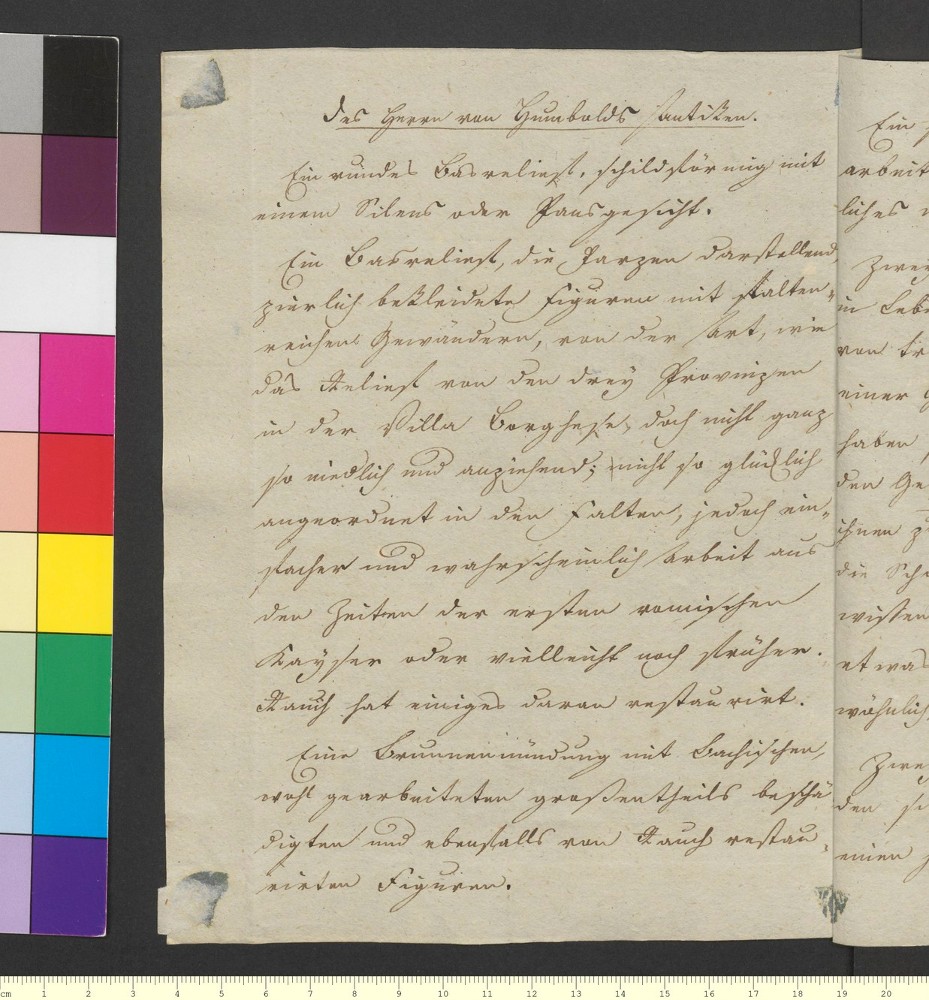 des Herrn von Humbolds Antiken.
Ein rundes Basrelief, schildförmig mit
einem Silens oder Pansgesicht.
Ein Basrelief, die Parzen darstellend,
zierlich bekleidete Figuren mit falten-
reichen Gewändern, von der Art, wie
das Relief von den drey Provinzen
in der Villa Borghese, doch nicht ganz
so niedlich und anziehend; nicht so glücklich
angeordnet in den Falten, jedoch ein-
facher und wahrscheinlich Arbeit aus
den Zeiten der ersten römischen
Kayser oder vielleicht noch früher.
Rauch hat einiges daran restaurirt.
Eine Brunnenmündung mit Bachischen,
wohl gearbeiteten großentheils beschä
digten und ebenfalls von Rauch restau-
rirten Figuren.
Ein
arbeit
liches
Zwey
in Lebe
von
einer
haben
den Ge
ihnen
die Sch
wissen
etwas
wöhnlich
Zwey
den
einen
cm 1 2 3 4 5 6 7 8 9 10 11 12 13 14 15 16 17 18 19 20